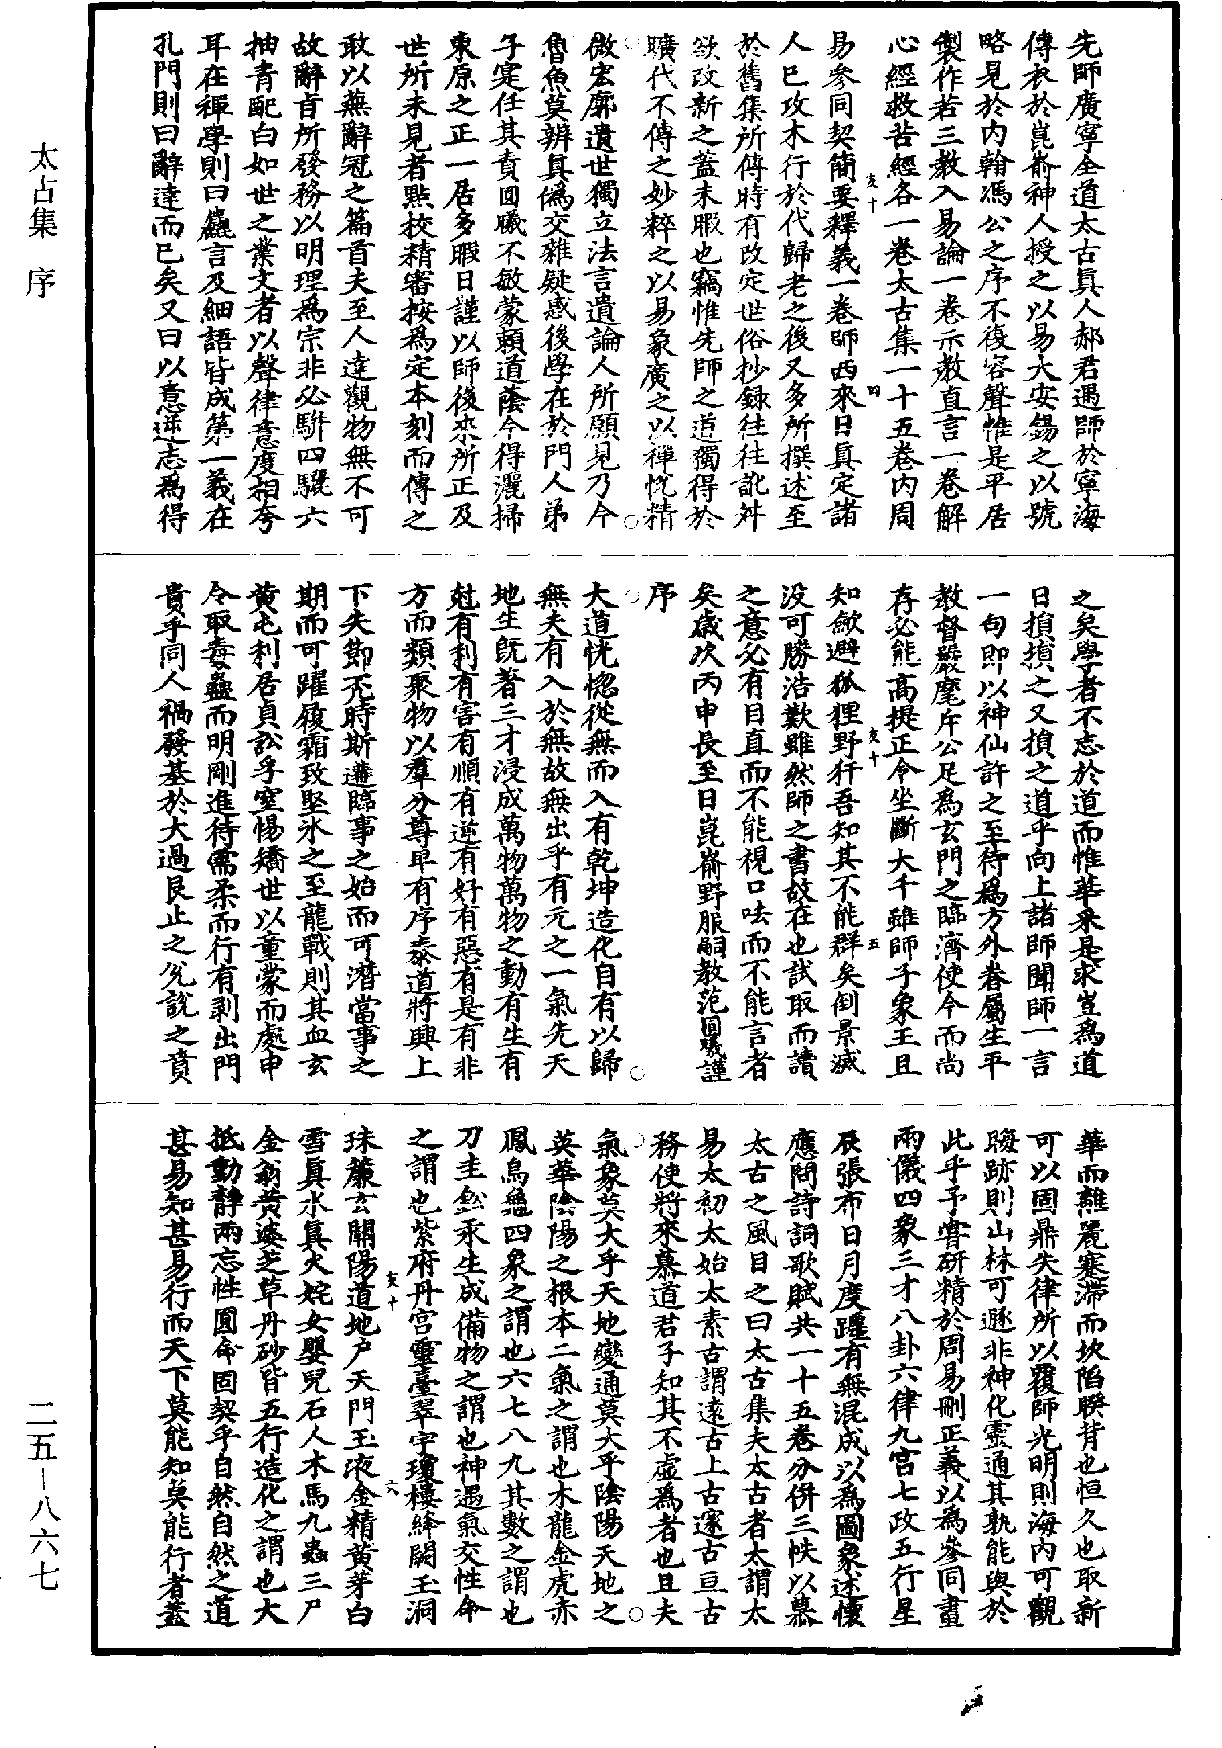 太古集　序
二五—八六七
先師廣寧全道太古真人郝君遇師於寧海
傳衣於崑嵛神人授之以易大安錫之以號
略見於内翰馮公之序不復容聲惟是平居
製作若三教入易論一卷示教直言一卷解
心經救苦經各一卷太古集一十五卷内周
易參同契簡要釋義一卷師西來日真定諸
人已攻木行於代歸老之後又多所撰述至
於舊集所傳時有改定世俗抄録往往訛舛
欲改新之蓋未暇也竊惟先師之道獨得於
曠代不傳之妙粹之以易象廣之以禪悦精
微宏廓遺世獨立法言遺論人所願見乃今
魯魚莫辨真僞交雜疑惑後學在於門人弟
子寔任其責圓曦不敏蒙頼道蔭今得灑掃
東原之正一居多暇日謹以師後來所正及
世所未見者點校精審按爲定本刻而傳之
敢以蕪辭冠之篇首夫至人達觀物無不可
故辭旨所發務以明理爲宗非必駢四驪六
抽青配白如世之業文者以聲律意度相夸
耳在禪學則曰麤言及細語皆成第一義在
孔門則曰辭達而已矣又曰以意逆志爲得
之矣學者不志於道而惟華采是求豈爲道
日損損之又損之道乎向上諸師聞師一言
一句即以神仙許之至待爲方外眷屬生平
教督嚴麾斥公足爲玄門之臨濟使今而尚
存必能高提正令坐斷大千雖師子象王且
知歛避狐狸野犴吾知其不能群矣倒景滅
没可勝浩歎雖然師之書故在也試取而讀
之意必有目直而不能視口呿而不能言者
矣歲次丙申長至日崑崳野服嗣教范圓曦謹
序
大道恍惚從無而入有乾坤造化自有以歸
無夫有入於無故無出乎有元之一氣先天
地生旣著三才浸成萬物萬物之動有生有
尅有利有害有順有逆有好有惡有是有非
方而類聚物以羣分尊卑有序泰道將興上
下失節否時斯遘臨事之始而可潛當事之
期而可躍履霜致堅冰之至龍戰則其血玄
黄屯利居貞訟孚窒惕矯世以童蒙而處申
令取毒蠱而明剛進待儒柔而行有剥出門
貴乎同人禍發基於大過艮止之兊説之賁
華而離麗蹇滯而坎陷睽背也恒久也取新
可以固鼎失律所以覆師光明則海内可觀
晦跡則山林可遯非神化靈通其孰能與於
此乎予嘗研精於周易刪正義以爲參同畫
兩儀四象三才八卦六律九宫七政五行星
辰張布日月度躔有無混成以爲圖象述懷
應問詩詞歌賦共一十五卷分併三帙以慕
太古之風目之曰太古集夫太古者太謂太
易太初太始太素古謂遠古上古邃古亘古
務使將來慕道君子知其不虚爲者也且夫
氣象莫大乎天地變通莫大乎陰陽天地之
英華陰陽之根本二氣之謂也木龍金虎赤
鳳烏龜四象之謂也六七八九其數之謂也
刀圭鉛汞生成備物之謂也神遇氣交性命
之謂也紫府丹宫靈臺翠宇瓊樓絳闕玉洞
珠簾玄關陽道地户天門玉液金精黄芽白
雪真水真火姹女嬰兒石人木馬九蟲三尸
金翁黄婆芝草丹砂皆五行造化之謂也大
抵動靜兩忘性圓命固契乎自然自然之道
甚易知甚易行而天下莫能知莫能行者蓋